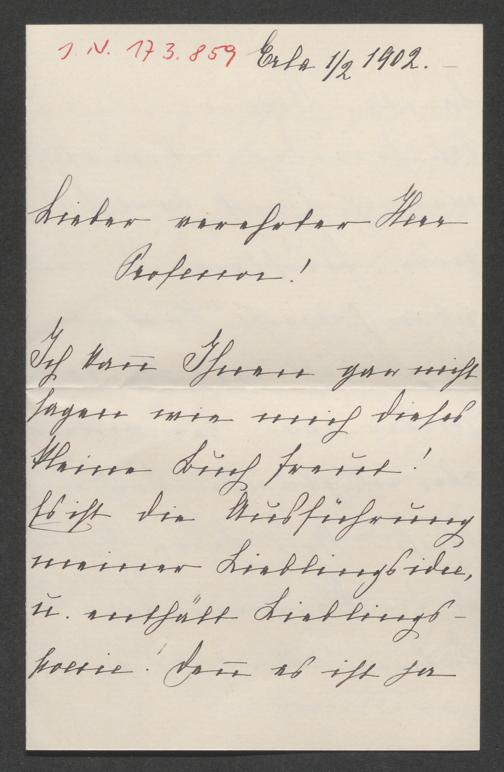 J. N. 173.859
Erla 1/2 1902.
Lieber verehrter Herr
Professor!
Ich kan̅ Ihnen gar nicht
sagen wie mich dieses
kleine Buch freut!
Es ist die Ausführung
meiner Lieblingsidee,
u. enthält Lieblings-
poesie! Den̅ es ist ja